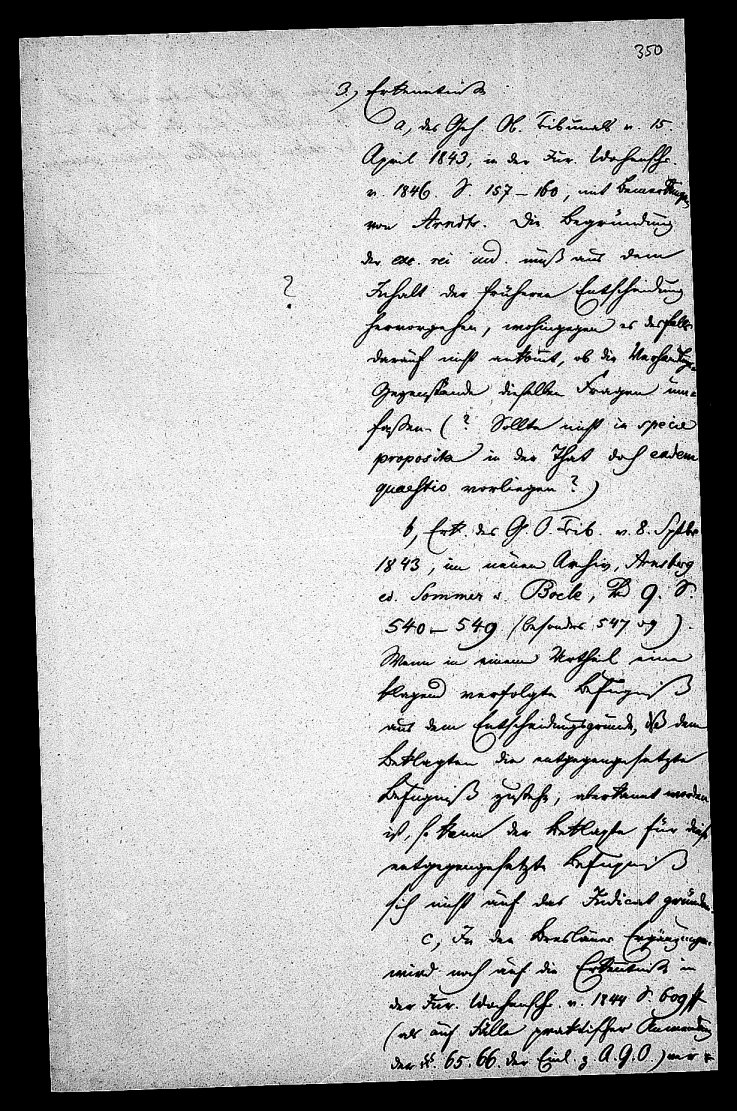 350
3., Erkenntniß
a, des Geh. Ob. Tribunals v. 15.
April 1843, in der Jur. Wochenschr.
v. 1846 S. 157-160, mit Bemerkungen
von Arndts. Die Begründung
der exc. rei iud. muß aus dem
?
Inhalt der früheren Entscheidung
hervorgehen, wohingegen es desfalls
darauf nicht ankömt, ob die
Gegenstände dieselben Fragen um=
faßen. (? Sollte nicht in specie
proposita in der That doch eadem
quaestio vorliegen?)
b, Erk. des G. O. Trib. v. 8. Sptbr
1843, im neuen Archiv, Arnsberg
ed. Sommer u. Boele, Bd 9. S.
540-549 (besonders 547 sq).
Wenn in einem Urtheil eine
klagend verfolgte Befugniß
aus dem Entscheidungsgrunde, daß dem
Beklagten die entgegengesetzte
Befugniß zustehe, aberkannt worden
ist, so kann der Beklagte für diese
entgegengesetzte Befugniß
sich nicht auf das Judicat gründen.
c, In den Breslauer Ergänzungen
wird noch auf die Erkenntniß in
der Jur. Wochensch. v. 1844 S. 609 ff
(als auf Fälle praktischer Anwendung
der §§. 65. 66. der Einl. z. A.G.O.) ver=